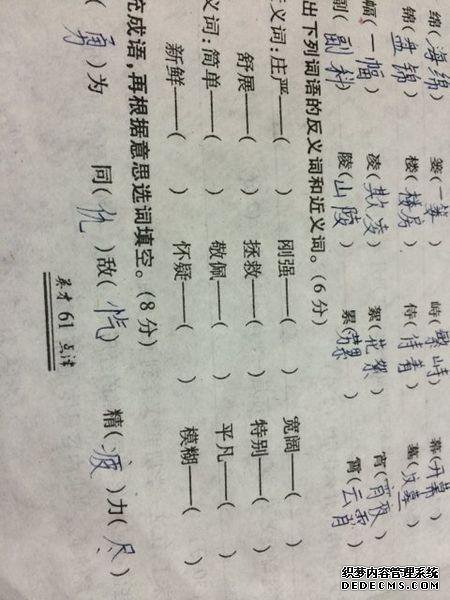 绵(海绵) 篓(一篓) 峙(繁峙) 幕(开幕)
锦(盘锦) 楼(楼房) 侍(侍者) 墓(
幅(一幅) 凌(欺凌) 絮(花絮) 宵(宵夜)
副(副科) 陵(山陵) 累(劳累) 霄(云霄)
出下列词语的反义词和近义词。(6分)
义词:庄严——( ) 刚强——( ) 宽阔——( )
舒展——( ) 拯救——( ) 特别——( )
义词:简单——( ) 敬佩——( ) 平凡——( )
新鲜——( ) 怀疑——( ) 模糊——( )
充成语,再根据意思选词填空。(8分)
(勇)为 同(仇)敌(忾) 精(疲)力(尽)
61 点津
织梦内容管理系统
DEDECMS.COM